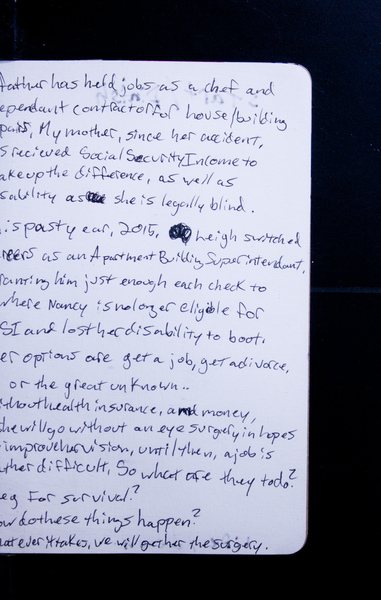 father has held jobs as a chef and
ependant contractor for house/building
pairs, My mother, since her accident,
s recieved Social Security Income to
ake up the difference, as well as
sability as she is legally blind.
is past year, 2015, heigh switched
reers as an Apartment Building Superintendant,
ranting him just enough each check to
where Nancy is no longer eligible for
SI and lost her disability to boot.
er options are get a job, get a divorce,
or the great unknown..
ithout health insurance, and money,
she will go without an eye surgery in hopes
improve her vision, until then, a job is
ther difficult, So what are they to do?
eg for survival?
ow do these things happen?
hatever it takes, we will get her the surgery.